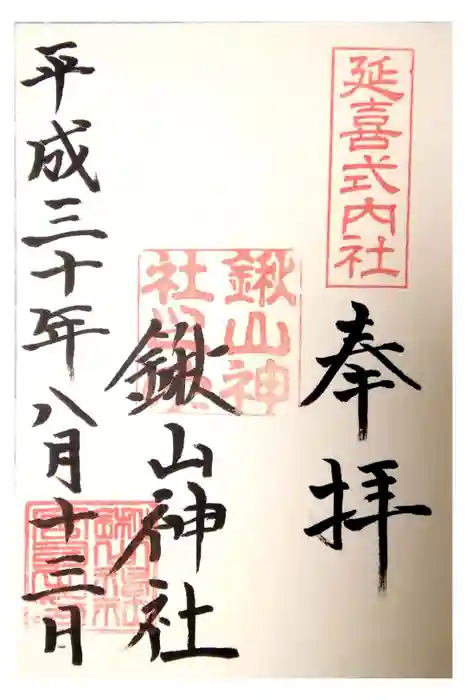 延喜式内社
奉拝
鍬山神社
鍬山神
社
平成三十年八月十三日